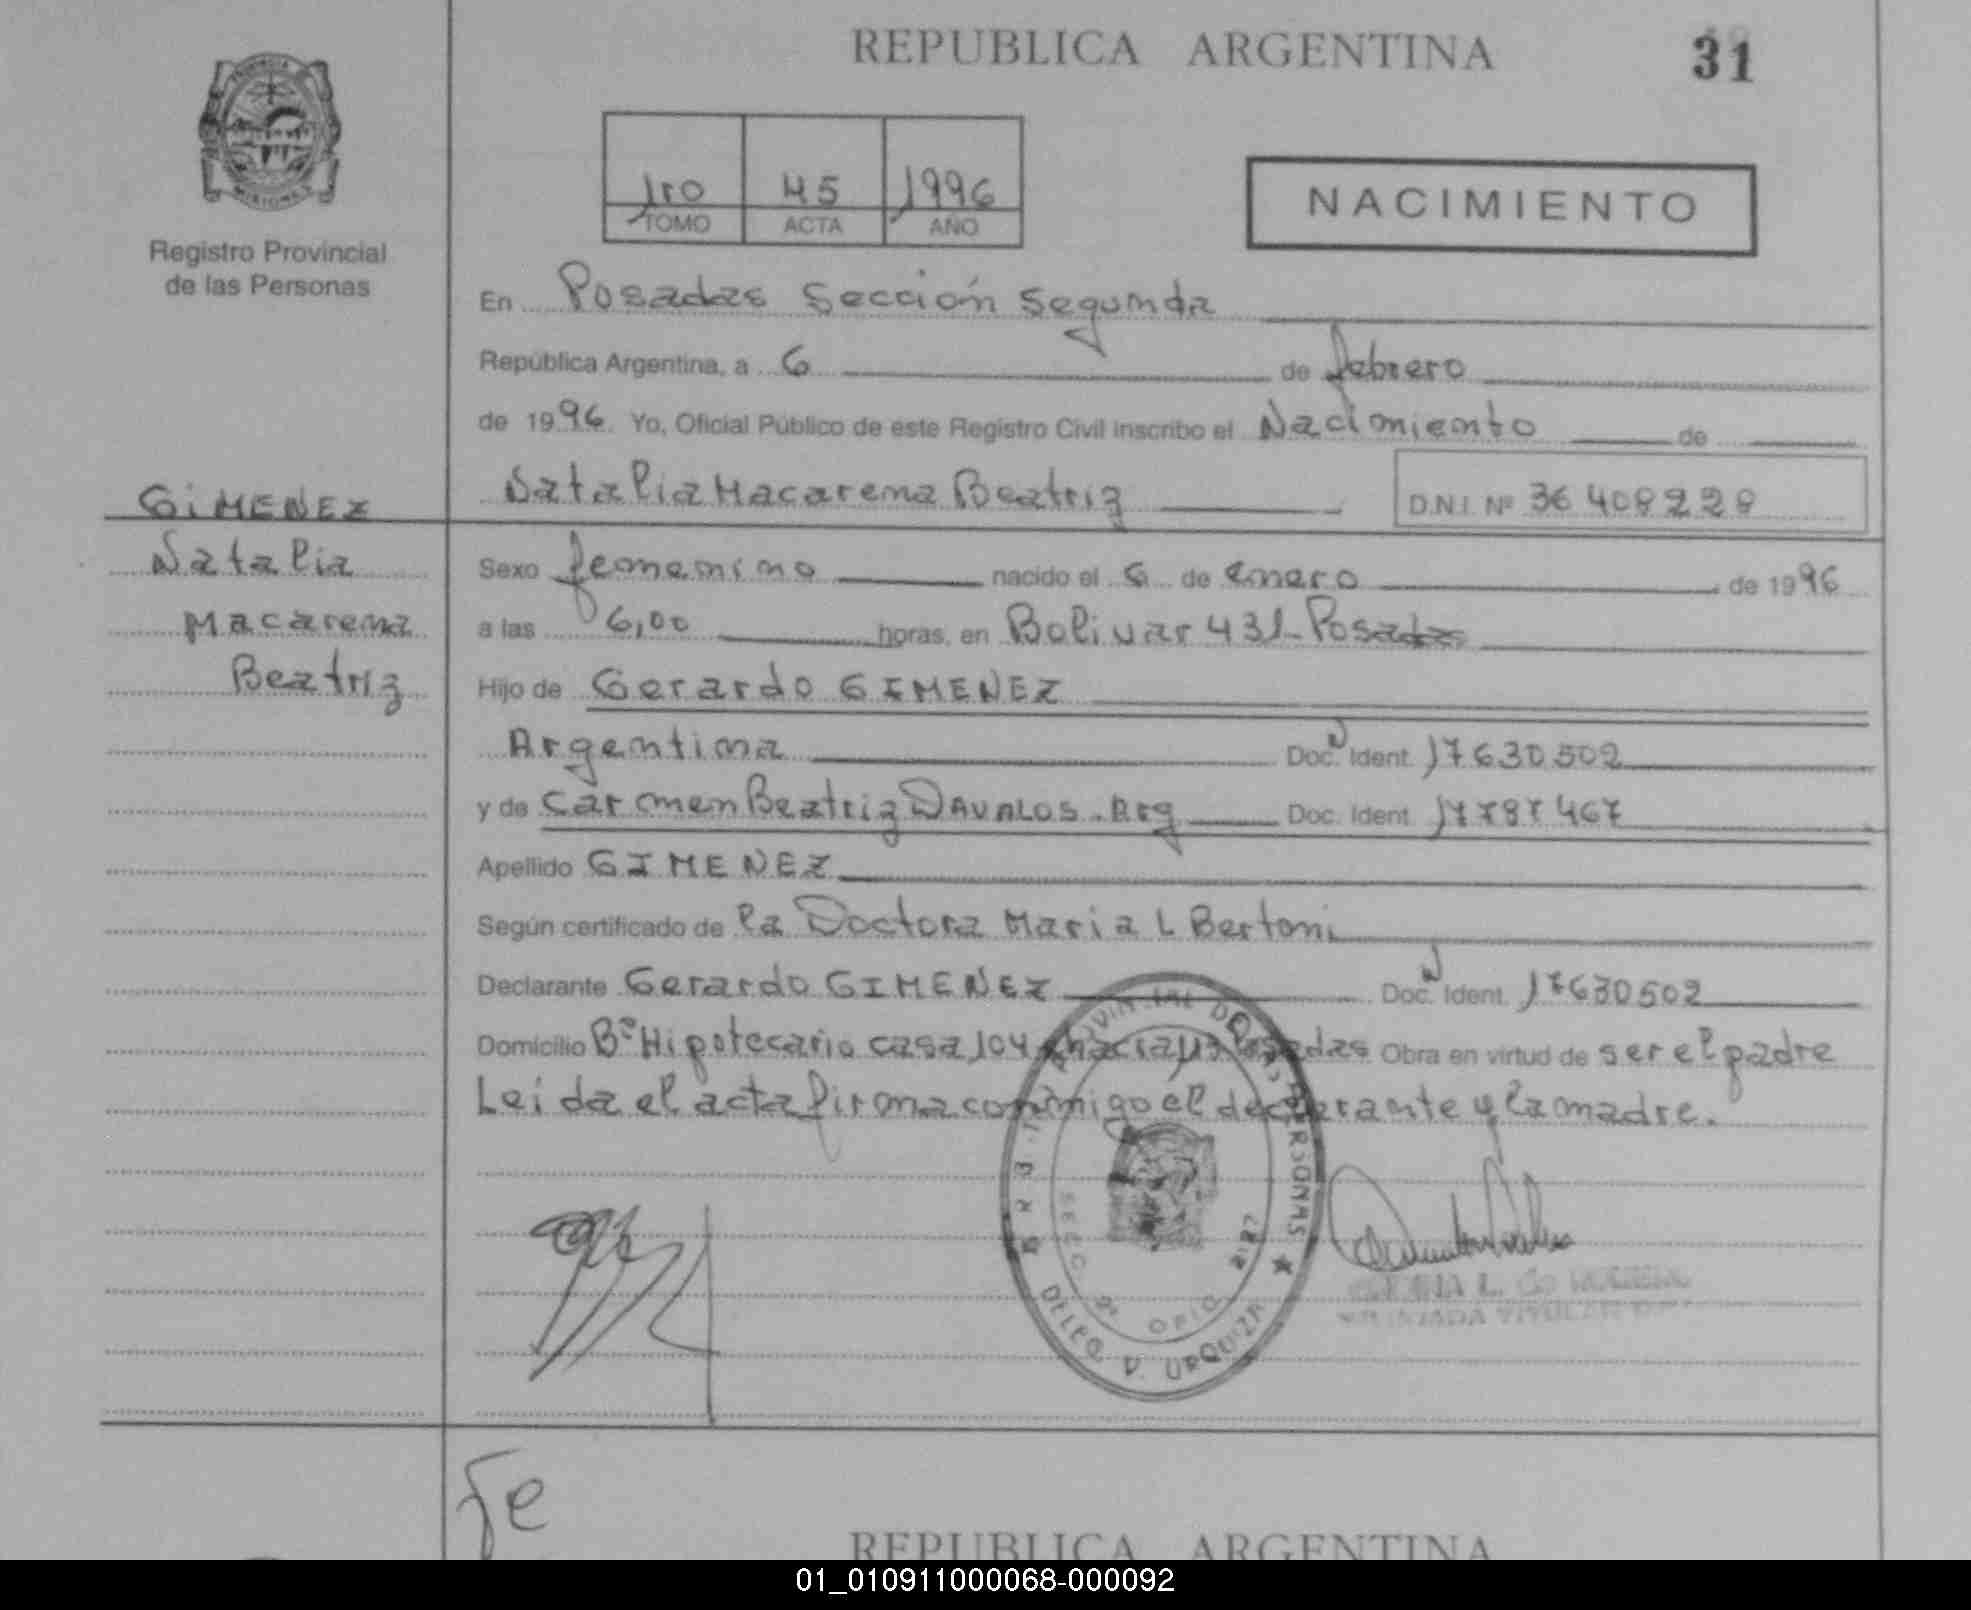 REPUBLICA ARGENTINA
31
PROVINCIA
MISIONES
Registro Provincial
de las Personas
1ro 45 1996
TOMO ACTA AÑO
NACIMIENTO
En Posadas Sección Segunda
República Argentina, a 6 de febrero
de 1996. Yo, Oficial Público de este Registro Civil inscribo el Nacimiento de
GIMENEZ
Natalia
Macarena
Beatriz
Natalia Macarena Beatriz D.N.I. Nº 36 408228
Sexo femenino nacido el 6 de enero de 1996
a las 6,00 horas, en Bolivar 431 - Posadas
Hijo de Gerardo GIMENEZ
Argentina Doc. Ident. 17630502
y de Carmen Beatriz DAVALOS - Arg Doc. Ident. 17787467
Apellido GIMENEZ
Según certificado de la Doctora Maria L Bertoni
Declarante Gerardo GIMENEZ Doc. Ident. 17630502
Domicilio Bº Hipotecario casa 104 chacra 113 Posadas Obra en virtud de ser el padre
Leida el acta firma conmigo el declarante y la madre.
PERSONAS
SECC. 2ª OFIC.
DELEG. P. URQUIZA
fe
REPUBLICA ARGENTINA
01_010911000068-000092